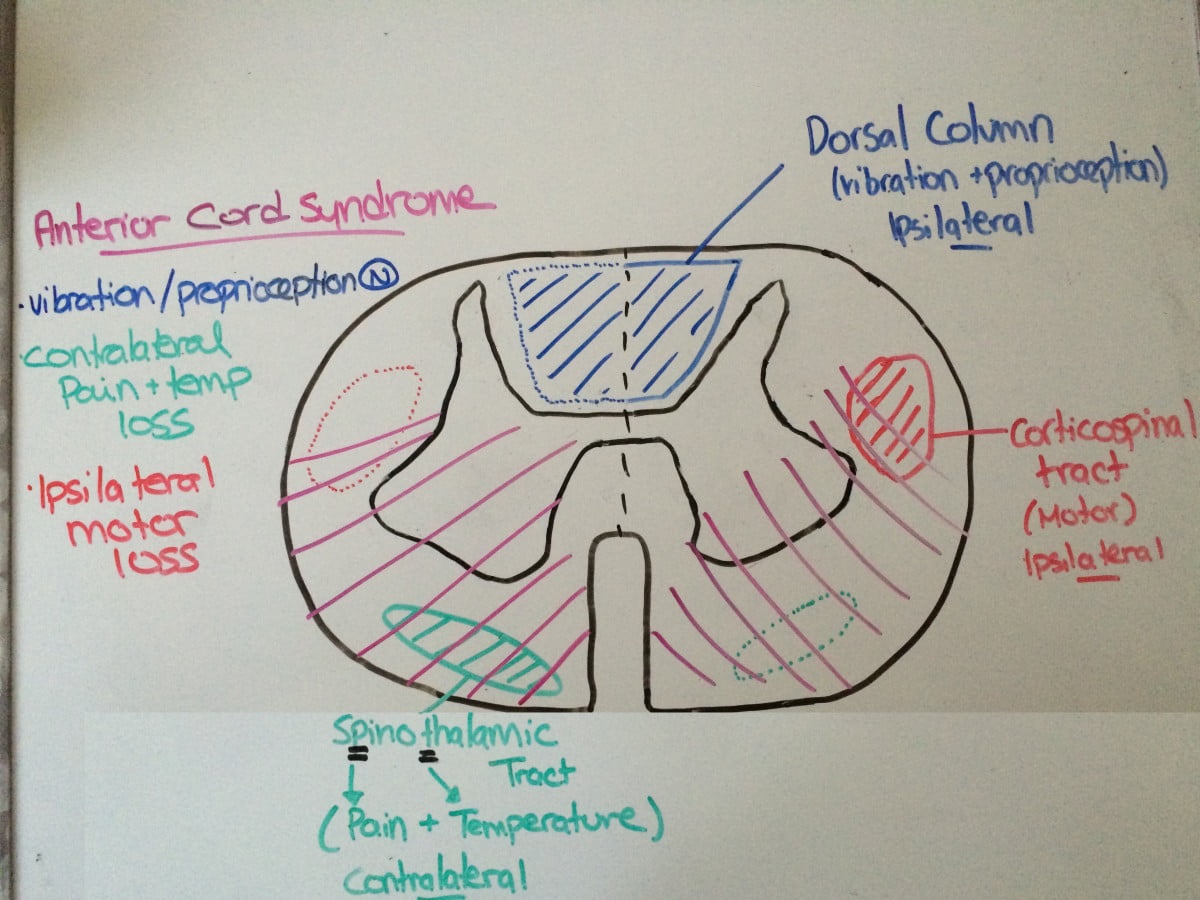 Anterior Cord Syndrome
· vibration/proprioception Ⓝ
· contralateral
Pain + temp
loss
· Ipsilateral
motor
loss
Dorsal Column
(vibration + proprioception)
Ipsilateral
Corticospinal
tract
(Motor)
Ipsilateral
Spinothalamic
Tract
(Pain + Temperature)
Contralateral